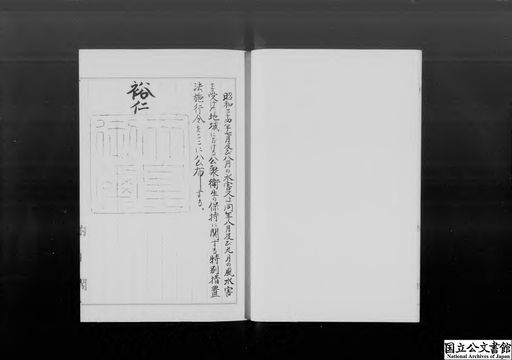 昭和三十四年七月及び八月の水害又は同年八月及び九月の風水害
を受けた地域における公衆衛生の保持に関する特別措置
法施行令をここに公布する。
裕仁
国立公文書館
National Archives of Japan